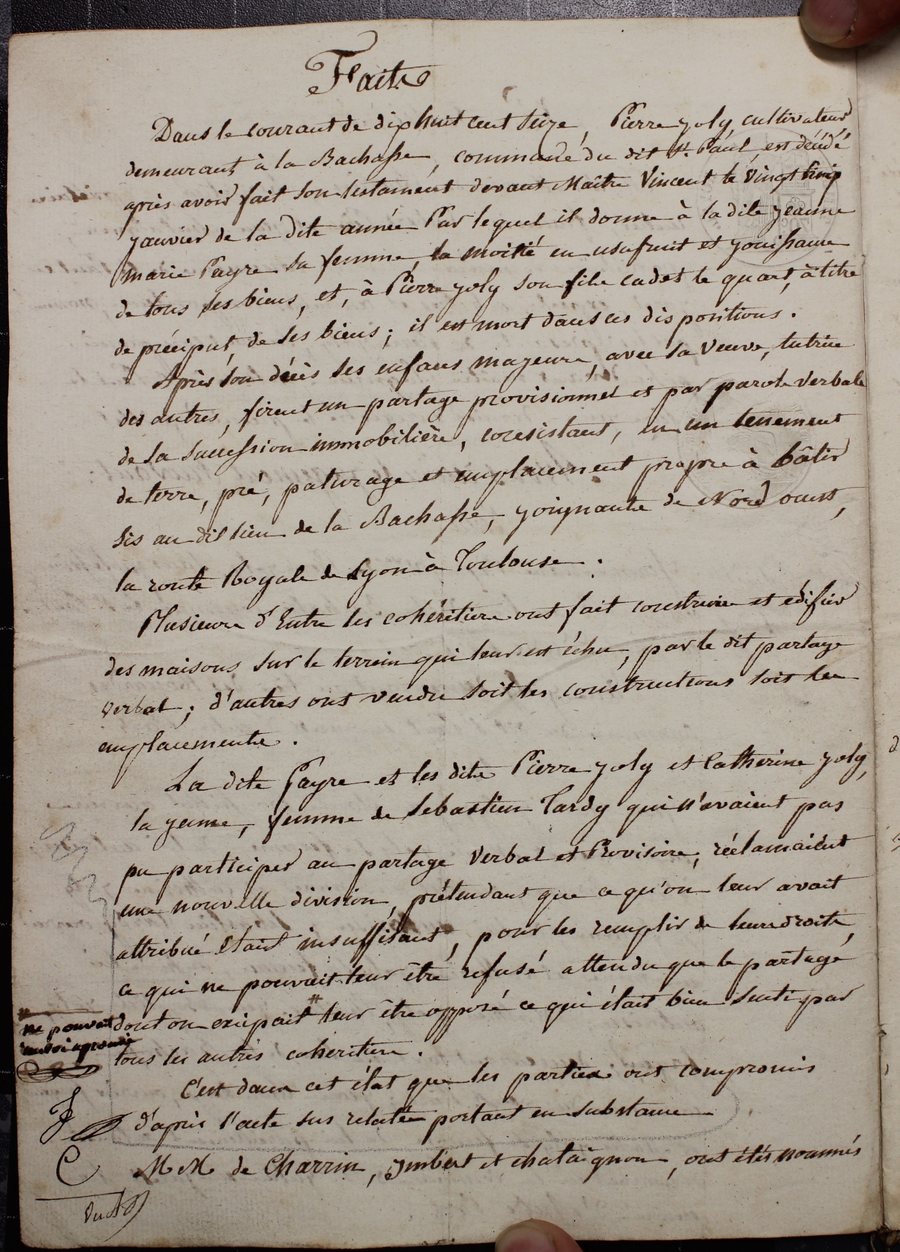 Faits
Dans le courant de dixhuit cent seize, Pierre joly, cultivateur
demeurant à la Bachasse, commune du dit St. Paul, est décédé
après avoir fait son testament devant Maître Vincent le vingt cinq
janvier de la dite année Par lequel il donne à la dite jeanne
marie Payre sa femme, la moitié en usufruit et jouissance
de tous ses biens, et, à Pierre joly son fils cadet le quart, à titre
de préciput de ses biens; il est mort dans ces dispositions.
Après son décès ses enfans majeurs, avec sa veuve, tutrice
des autres, firent un partage provisionnel et par parole verbale
de sa succession immobilière, consistant, en un tennement
de terre, pré, paturage et emplacement propre à bâtir
sis au dit lieu de la Bachasse, joignante de Nord ouest,
la route Royale de Lyon à Toulouse.
Plusieurs d'Entre les cohéritiers ont fait construire et édifier
des maisons sur le terrein qui leur est échu, par le dit partage
verbal; d'autres ont vendu soit les constructions soit les
emplacements.
La dite Payre et les dits Pierre joly et Catherine joly,
la jeune, femme de Sebastien Tardy qui n'avaient pas
pu participer au partage verbal et Provisoire, réclamaient
une nouvelle division, prétendant que ce qu'on leur avait
attribué était insuffisant, pour les remplir de leurs droits,
ce qui ne pouvait leur être refusé attendu que le partage
dont on excipait # leur être opposé ce qui était bien senti par
tous les autres cohéritiers.
# ne pouvait
C'est dans cet état que les parties ont compromis
d'après l'acte sus relaté portant en substance
M M de Charrin, jmbert et chataignon, ont étés nommés